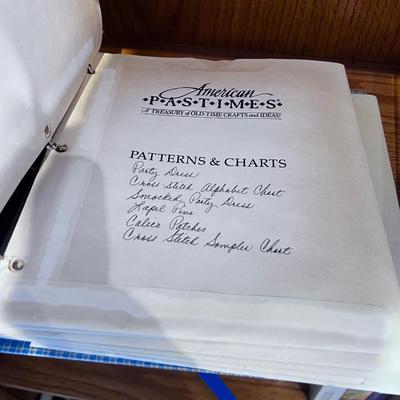 American
P•A•S•T•I•M•E•S•
A TREASURY of OLD-TIME CRAFTS and IDEAS!
PATTERNS & CHARTS
Party Dress
Cross Stitch Alphabet Chart
Smocked Party Dress
Lapel Pins
Calico Patches
Cross Stitch Sampler Chart